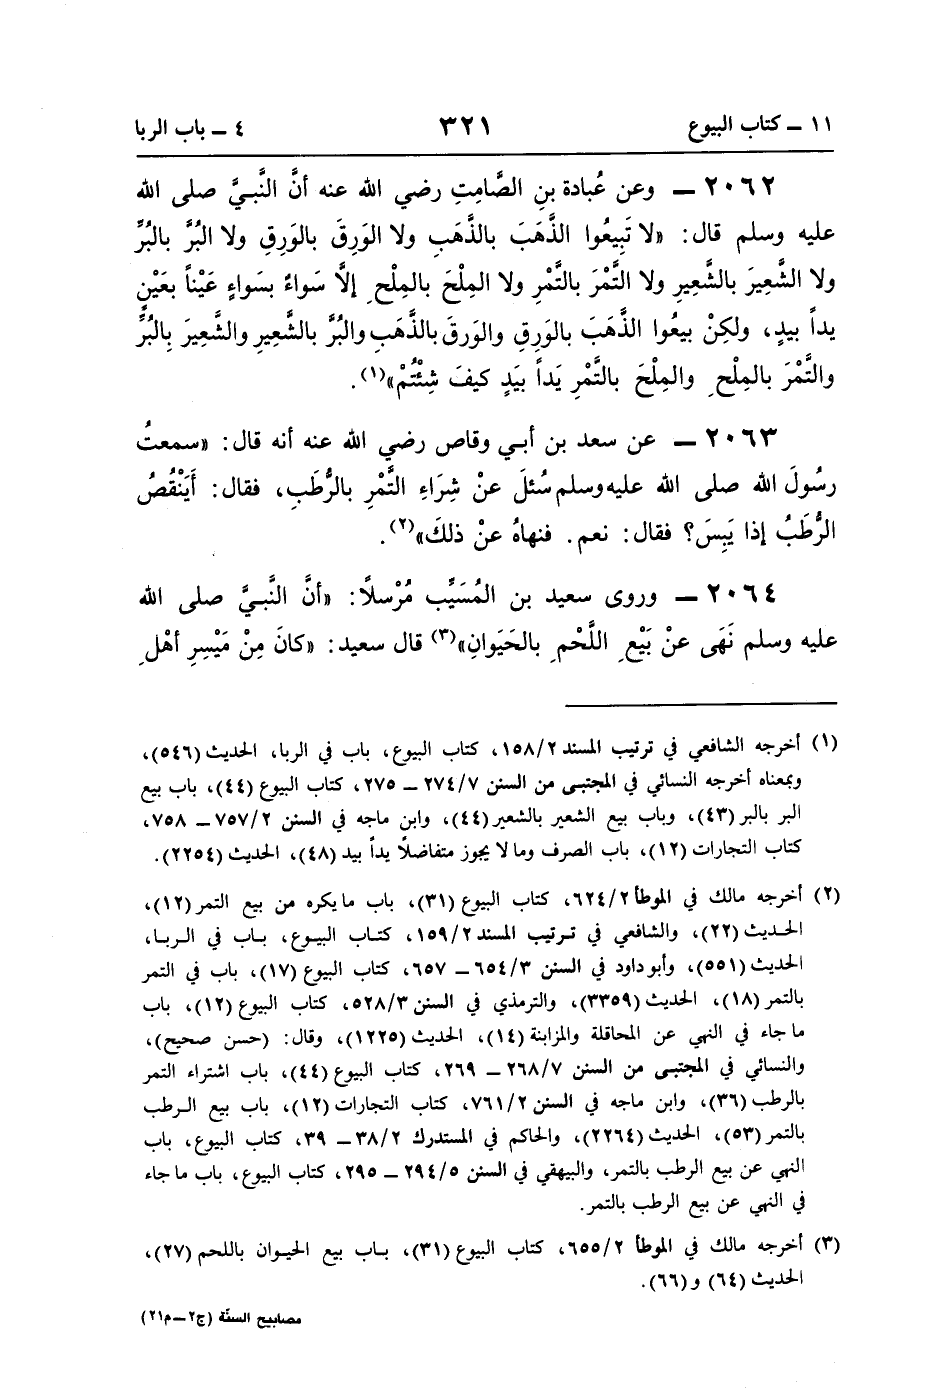 ١١ ــ كتاب البيوع ٣٢١ ٤ ــ باب الربا
٢٠٦٢ ــ وعن عُبادة بنِ الصَّامِتِ رضي الله عنه أنَّ النَّبيَّ صلى الله
عليه وسلم قال: «لا تَبِيعُوا الذَّهَبَ بالذَّهَبِ ولا الوَرِقَ بالوَرِقِ ولا البُرَّ بالبُرِّ
ولا الشَّعِيرَ بالشَّعِيرِ ولا التَّمْرَ بالتَّمْرِ ولا المِلْحَ بالمِلْحِ إلاَّ سَواءً بسَواءٍ عَيْناً بعَيْنٍ
يداً بيدٍ، ولكِنْ بيعُوا الذَّهَبَ بالوَرِقِ والوَرِقَ بالذَّهَبِ والبُرَّ بالشَّعِيرِ والشَّعِيرَ بِالبُرِّ
والتَّمْرَ بالمِلْحِ والمِلْحَ بالتَّمْرِ يَداً بيَدٍ كيفَ شِئْتُمْ»(١).
٢٠٦٣ ــ عن سعد بن أبي وقاص رضي الله عنه أنه قال: «سمعتُ
رسُولَ الله صلى الله عليه وسلم سُئلَ عنْ شِرَاءِ التَّمْرِ بالرُّطَبِ، فقال: أَيَنْقُصُ
الرُّطَبُ إذا يَبِسَ؟ فقال: نعم. فنهاهُ عنْ ذلكَ»(٢).
٢٠٦٤ ــ وروى سعيد بن المُسَيِّب مُرْسلًا: «أنَّ النَّبيَّ صلى الله
عليه وسلم نَهَى عنْ بَيْعِ اللَّحْمِ بالحَيَوانِ»(٣) قال سعيد: «كانَ مِنْ مَيْسِرِ أهْلِ
(١) أخرجه الشافعي في ترتيب المسند ١٥٨/٢، كتاب البيوع، باب في الربا، الحديث (٥٤٦)،
وبمعناه أخرجه النسائي في المجتبى من السنن ٢٧٤/٧ ــ ٢٧٥، كتاب البيوع (٤٤)، باب بيع
البر بالبر (٤٣)، وباب بيع الشعير بالشعير (٤٤)، وابن ماجه في السنن ٧٥٧/٢ ــ ٧٥٨،
كتاب التجارات (١٢)، باب الصرف وما لا يجوز متفاضلاً يداً بيد (٤٨)، الحديث (٢٢٥٤).
(٢) أخرجه مالك في الموطأ ٦٢٤/٢، كتاب البيوع (٣١)، باب ما يكره من بيع التمر (١٢)،
الحديث (٢٢)، والشافعي في ترتيب المسند ١٥٩/٢، كتاب البيوع، باب في الربا،
الحديث (٥٥١)، وأبو داود في السنن ٦٥٤/٣ ــ ٦٥٧، كتاب البيوع (١٧)، باب في التمر
بالتمر (١٨)، الحديث (٣٣٥٩)، والترمذي في السنن ٥٢٨/٣، كتاب البيوع (١٢)، باب
ما جاء في النهي عن المحاقلة والمزابنة (١٤)، الحديث (١٢٢٥)، وقال: (حسن صحيح)،
والنسائي في المجتبى من السنن ٢٦٨/٧ ــ ٢٦٩، كتاب البيوع (٤٤)، باب اشتراء التمر
بالرطب (٣٦)، وابن ماجه في السنن ٧٦١/٢، كتاب التجارات (١٢)، باب بيع الرطب
بالتمر (٥٣)، الحديث (٢٢٦٤)، والحاكم في المستدرك ٣٨/٢ ــ ٣٩، كتاب البيوع، باب
النهي عن بيع الرطب بالتمر، والبيهقي في السنن ٢٩٤/٥ ــ ٢٩٥، كتاب البيوع، باب ما جاء
في النهي عن بيع الرطب بالتمر.
(٣) أخرجه مالك في الموطأ ٦٥٥/٢، كتاب البيوع (٣١)، باب بيع الحيوان باللحم (٢٧)،
الحديث (٦٤) و(٦٦).
مصابيح السنّة (ج٢ــ م٢١)